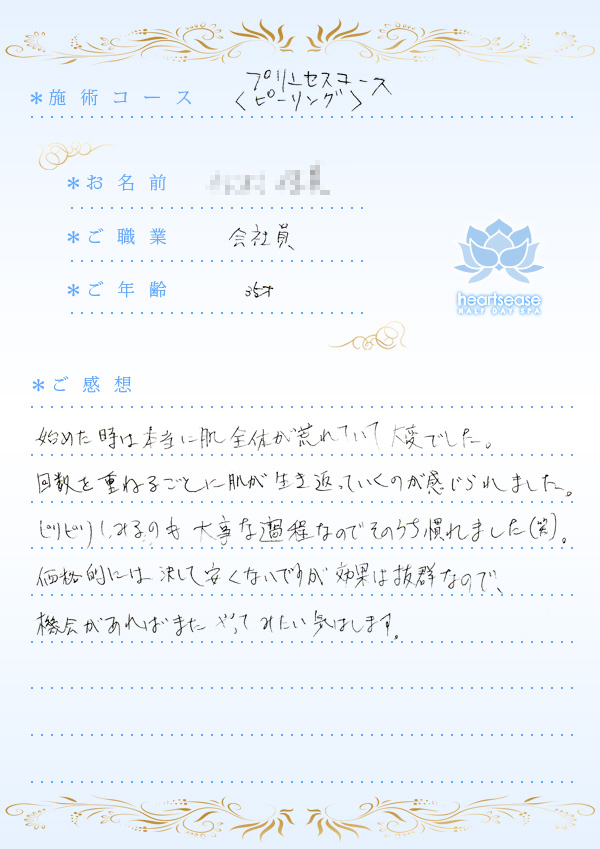 *施術コース プリンセスコース
<ピーリング>
*お名前
*ご職業 会社員
*ご年齢 35才
heartsease
HALF DAY SPA
*ご感想
始めた時は本当に肌全体が荒れていて大変でした。
回数を重ねるごとに肌が生き返っていくのが感じられました。
ピリピリしみるのも大事な過程なのでそのうち慣れました(笑)。
価格的には決して安くないですが効果は抜群なので、
機会があればまたやってみたい気はします。